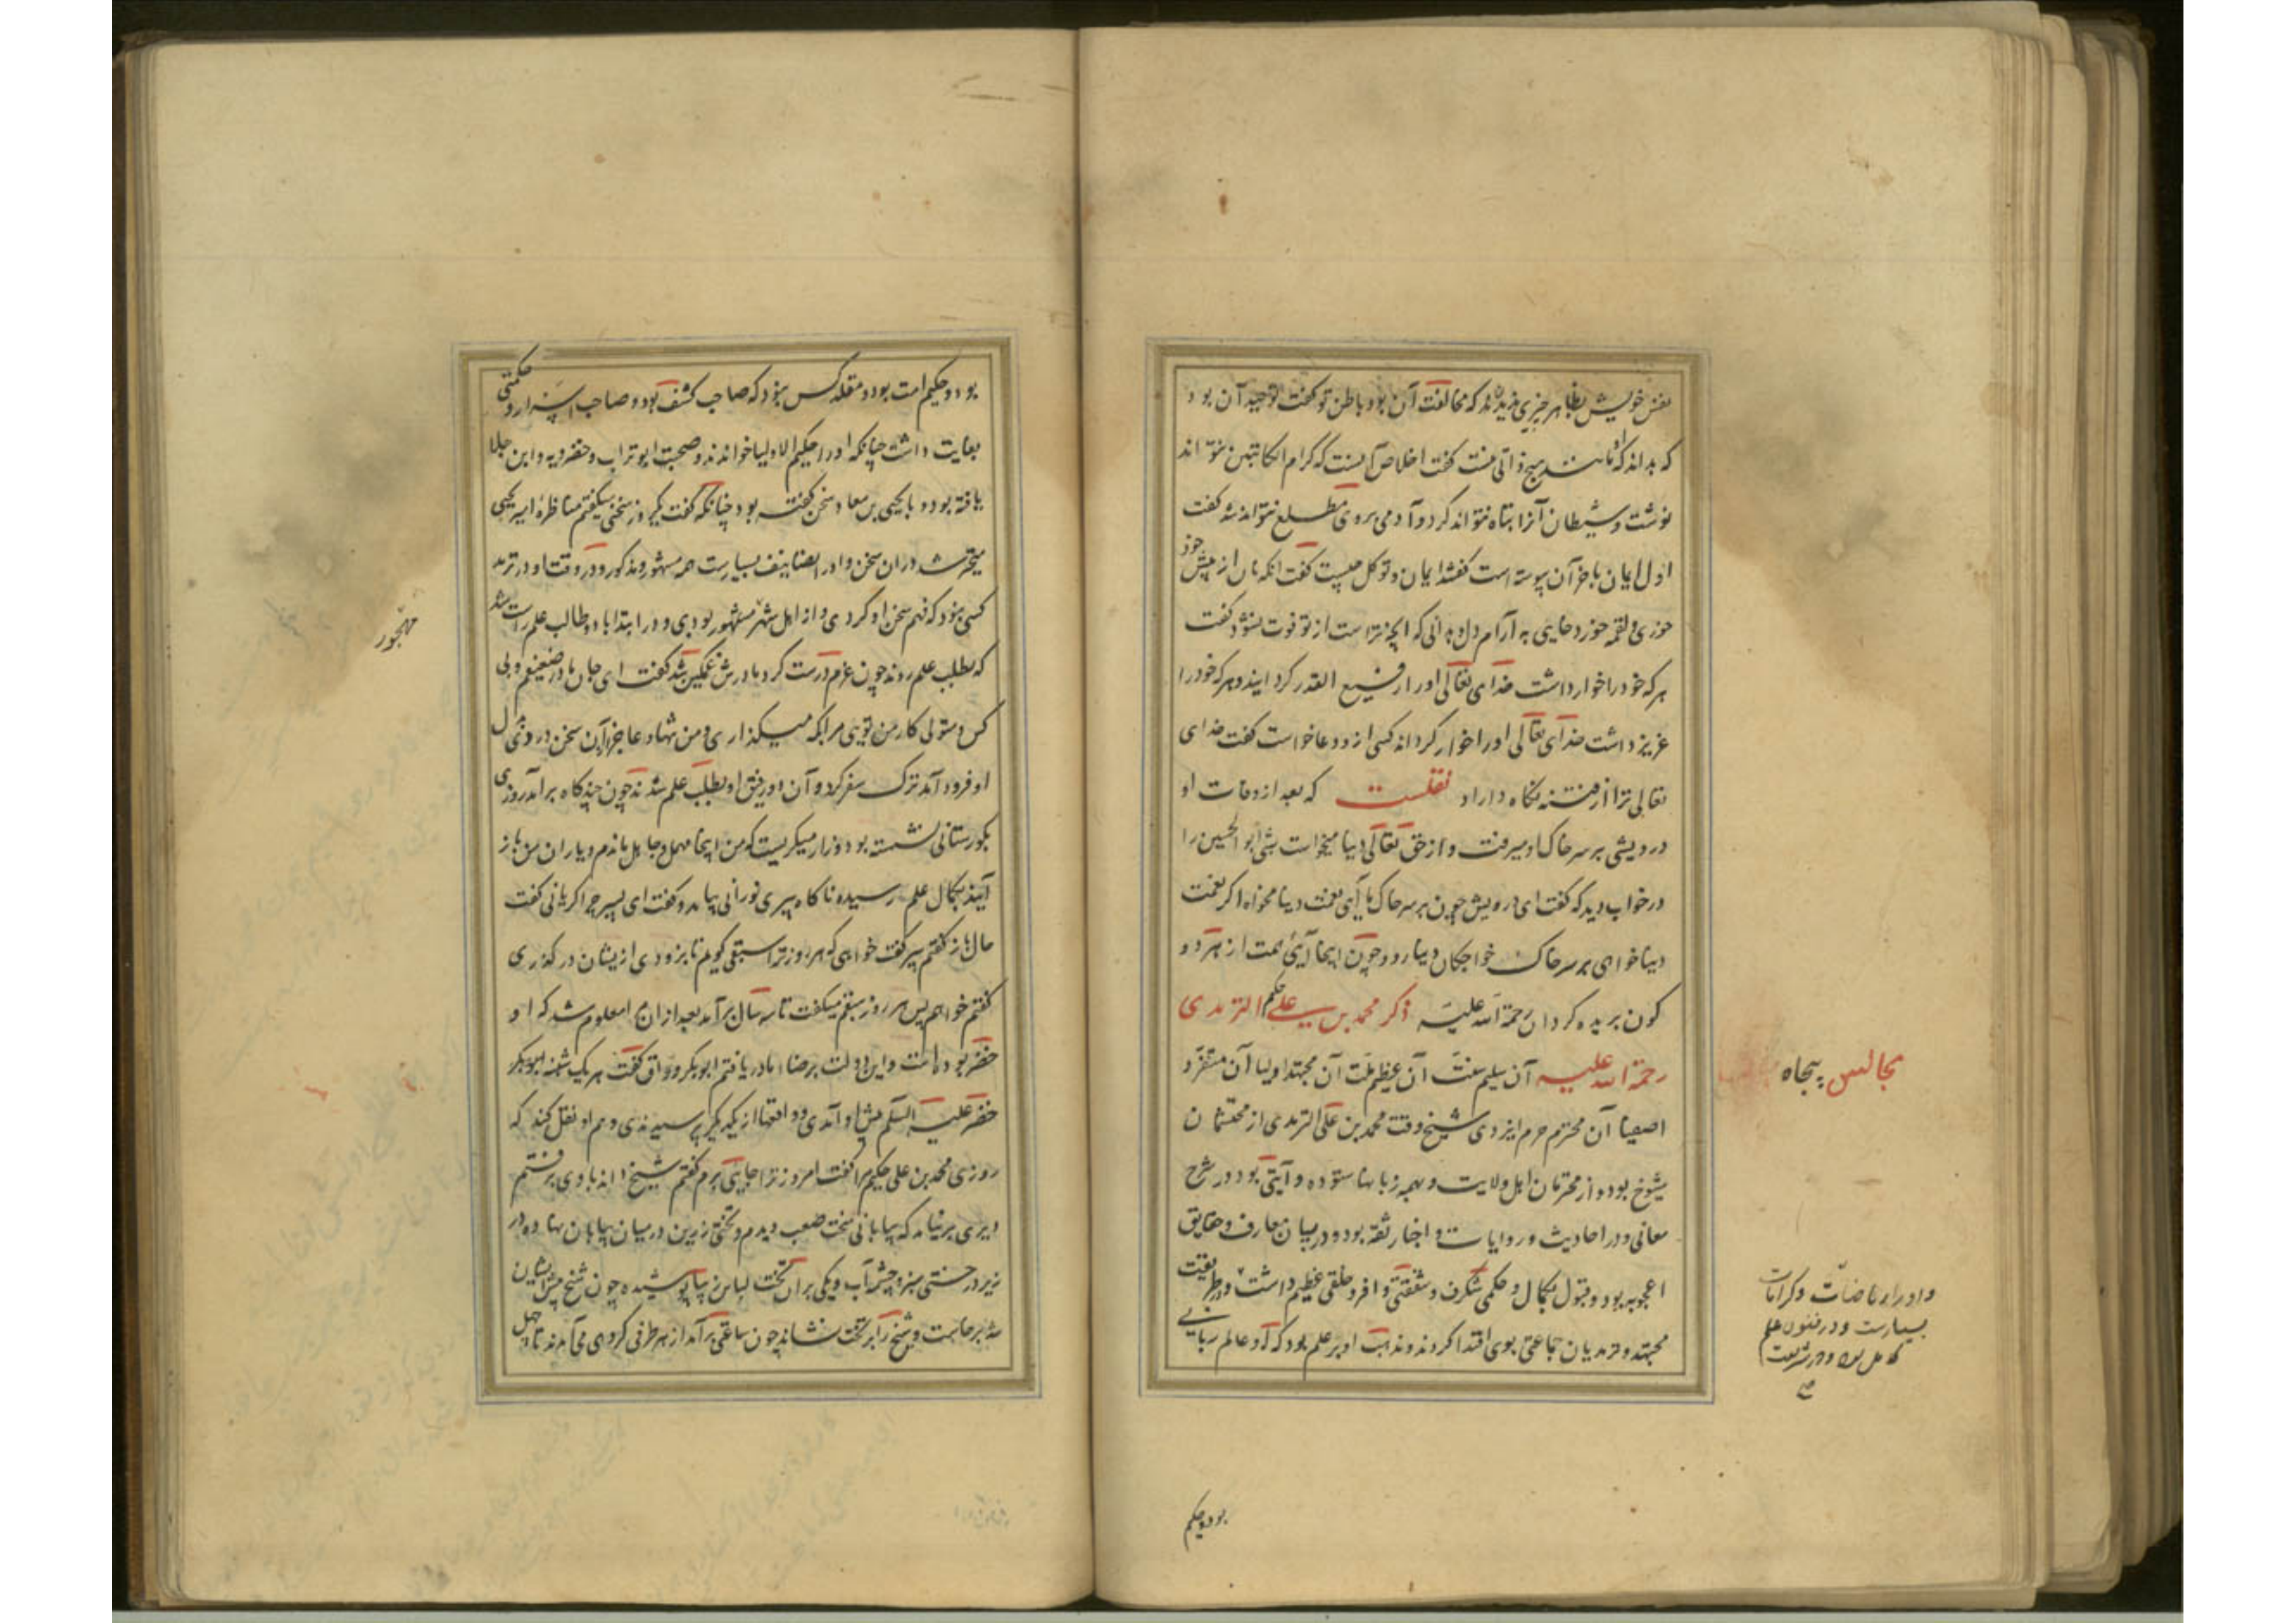 نفس خویش بظاهر چیزی پدید نماند که مخالفت آن بود باطن تو گفت توحید آن بود
که بداند که مانند هیچ ذاتی نیست گفت اخلاص آنست که کرام الکاتبین نتواند
نوشت و شیطان آنرا تباه نتواند کرد و آدمی بروی مطلع نتواند شد گفت
اول ایمان باخر آن پیوسته است گفتند ایمان و توکل چیست گفت آنکه نان از پیش خود
خوری و لقمه خورد خایی به آرام دل و بدانی که آنچه تراست از تو فوت نشود گفت
هر که خود را خوار داشت خدای تعالی او را رفیع القدر گرداند و هر که خود را
عزیز داشت خدای تعالی او را خوار گرداند کسی ازو دعا خواست گفت خدای
تعالی ترا از فتنه نگاه داراد نقلست که بعد از وفات او
درویشی بر سر خاک او میرفت و از حق تعالی دنیا میخواست شبی ابو الحسین را
در خواب دید که گفت ای درویش چون بر سر خاک ما آیی نعمت دنیا مخواه اگر نعمت
دنیا خواهی بر سر خاک خواجگان دنیا رو و چون اینجا آیی همت از هر دو
کون بریده گردان رحمة الله علیه ذکر محمد بن علی حکیم الترمدی
رحمة الله علیه آن سلیم سنت آن عظیم ملت آن مجتهد اولیا آن متفرد
اصفیا آن محترم حرم ایزدی شیخ وقت محمد بن علی الترمدی از محتشمان
شیوخ بود و از محترمان اهل ولایت و بهمه زبانها ستوده و آیتی بود در شرح
معانی و در احادیث و روایات و اخبار ثقه بود و در بیان معارف و حقایق
اعجوبه بود و قبول بکمال و حکمی شگرف و شفقتی وافر و خلقی عظیم داشت و در طریقت
مجتهد و ترمدیان جماعتی بوی اقتدا کردند و مذهب او بر علم بود که او عالم ربانی
مجالس پنجاه
و او را ریاضات و کرامات
بسیارست و در فنون علم
کامل بود و در شریعت
صح
بود و حکیم
بود و حکیم امت بود و مقلد کس نبود که صاحب کشف بود و صاحب اسرار و حکمتی
بغایت داشت چنانکه او را حکیم الاولیا خواندند و صحبت ابو تراب و خضرویه و ابن جلا
یافته بود و با یحیی بن معاد سخن گفته بود چنانکه گفت یکروز سخنی میگفتم مناظره امیر یحیی
متحیر شد در آن سخن و او را تصانیف بسیارست همه مشهور و مذکور و در وقت او در ترمد
کسی نبود که فهم سخن او کردی و از اهل شهر مهجور بودی و در ابتدا با دو طالب علم راست شد
که بطلب علم روند چون عزم درست کرد مادرش غمگین شد گفت ای جان مادر ضعیفم و بی
کس و متولی کار من تویی مرا بکه میگذاری و من تنها و عاجز از آن سخن دردی در دل
او فرود آمد ترک سفر کرد و آن دو رفیق او بطلب علم شدند چون چندگاه بر آمد روزی
بگورستانی نشسته بود و زار میگریست که من اینجا مهمل و جاهل ماندم و یاران من باز
آیند بکمال علم رسیده ناگاه پیری نورانی بیامد و گفت ای پسر چرا گریانی گفت
حال باز گفتم پیر گفت خواهی که هر روز ترا سبقی گویم تا بزودی ازیشان درگذری
گفتم خواهم پس هر روز سبقم میگفت تا سه سال برآمد بعد از آن مرا معلوم شد که او
خضر بود و این دولت برضاء مادر یافتم ابوبکر وراق گفت هر یک شنبه ابوبکر
خضر علیه السلام پیش او آمدی و واقعها از یکدیگر پرسیدندی و هم او نقل کند که
روزی محمد بن علی حکیم مرا گفت امروز ترا جایی برم گفتم شیخ داند با وی برفتم
دیری برنیامد که بیابانی سخت صعب دیدم و تختی زرین در میان بیابان نهاده در
زیر درختی سبز و چشمه آب و یکی بر آن تخت لباس زیبا پوشیده چون شیخ پیش ایشان
شد برخاست و شیخ را بر تخت نشاند چون ساعتی برآمد از هر طرفی گروهی می آمدند تا چهل
مهجور